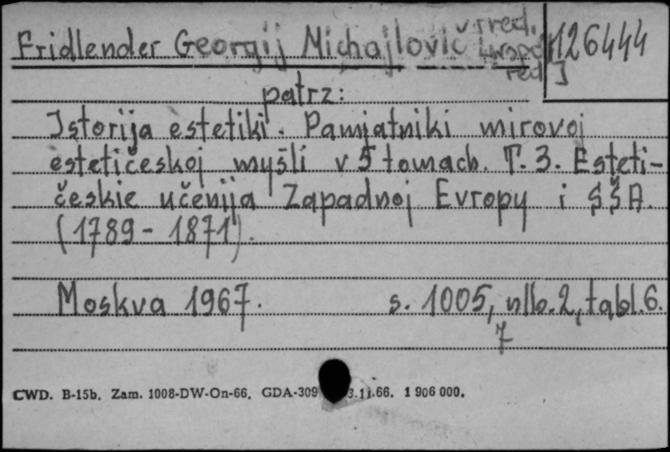 Fridlender Georgij Michajlovič v red. 126444
red. I
patrz:
Istorija estetiki. Pamjatniki mirovoj
èstetičeskoj mysli v 5 tomach. T. 3. Esteti-
českie učenija Zapadnoj Evropy i SŠA.
(1789 - 1871).
Moskva 1967. s. 1005, nlb. 2, tabl. 6.
7
CWD. B-15b. Zam. 1008-DW-On-66. GDA-309 3.11.66. 1 906 000.